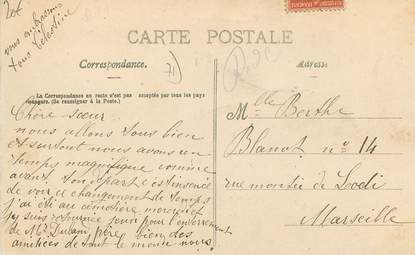 20€
vous embrassons
tous Célestine
CARTE POSTALE
Correspondance.
71
Adresse
La Correspondance au recto n'est pas acceptée par tous les pays
étrangers. (Se renseigner à la Poste.)
Chère sœur
nous allons tous bien
et surtout nous avons un
temps magnifique comme
avant ton départ c'est insensé
de voir ce changement de temps
j'ai été au cimetière mercredi et
j'y suis retournée jeudi pour l'enterrement
de Mr père bien des
amitiés de tout le monde nous
Mlle Berthe
Blanot nº 14
rue montée de Lodi
Marseille